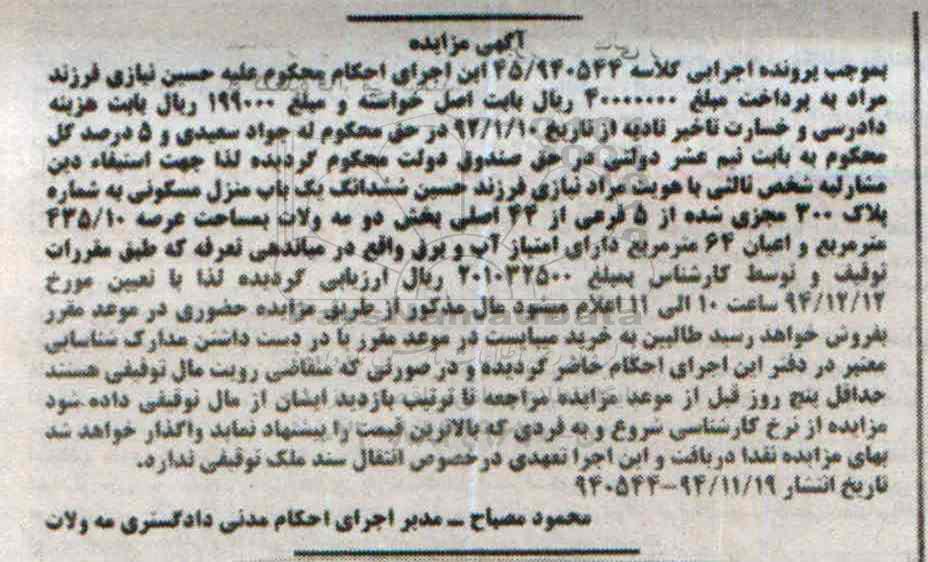 آگهی مزایده
بموجب پرونده اجرایی کلاسه ۴۵/۹۴۰۵۴۴ این اجرای احکام محکوم علیه حسین نیازی فرزند
مراد به پرداخت مبلغ ۴۰۰۰۰۰۰۰ ریال بابت اصل خواسته و مبلغ ۱۹۹۰۰۰ ریال بابت هزینه
دادرسی و خسارت تاخیر تادیه از تاریخ ۹۲/۱/۱۰ در حق محکوم له جواد سعیدی و ۵ درصد کل
محکوم به بابت نیم عشر دولتی در حق صندوق دولت محکوم گردیده لذا جهت استیفاء دین
مشارلیه شخص ثالثی با هویت مراد نیازی فرزند حسین ششدانگ یک باب منزل مسکونی به شماره
پلاک ۳۰۰ مجزی شده از ۵ فرعی از ۴۳ اصلی بخش دو مه ولات بمساحت عرصه ۴۳۵/۱۰
مترمربع و اعیان ۶۴ مترمربع دارای امتیاز آب و برق واقع در میاندهی تعرفه که طبق مقررات
توقیف و توسط کارشناس بمبلغ ۲۰۱۰۳۲۵۰۰ ریال ارزیابی گردیده لذا با تعیین مورخ
۹۴/۱۲/۱۲ ساعت ۱۰ الی ۱۱ اعلام میشود مال مذکور از طریق مزایده حضوری در موعد مقرر
بفروش خواهد رسید طالبین به خرید میبایست در موعد مقرر با در دست داشتن مدارک شناسایی
معتبر در دفتر این اجرای احکام حاضر گردیده و در صورتی که متقاضی رویت مال توقیفی هستند
حداقل پنج روز قبل از موعد مزایده مراجعه تا ترتیب بازدید ایشان از مال توقیفی داده شود
مزایده از نرخ کارشناسی شروع و به فردی که بالاترین قیمت را پیشنهاد نماید واگذار خواهد شد
بهای مزایده نقدا دریافت و این اجرا تعهدی درخصوص انتقال سند ملک توقیفی ندارد.
تاریخ انتشار ۹۴/۱۱/۱۹-۹۴۰۵۴۴
محمود مصباح ــ مدیر اجرای احکام مدنی دادگستری مه ولات